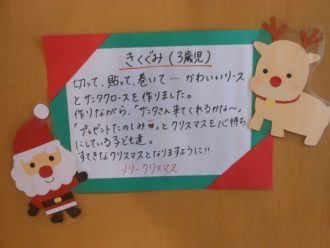 きくぐみ(3歳児)
切って、貼って、巻いて…かわいいリース
とサンタクロースを作りました。
作りながら、「サンタさん来てくれるかな〜」
「プレゼントたのしみ♥」とクリスマスを心待ち
にしている子ども達。
すてきなクリスマスとなりますように!!
メリークリスマス